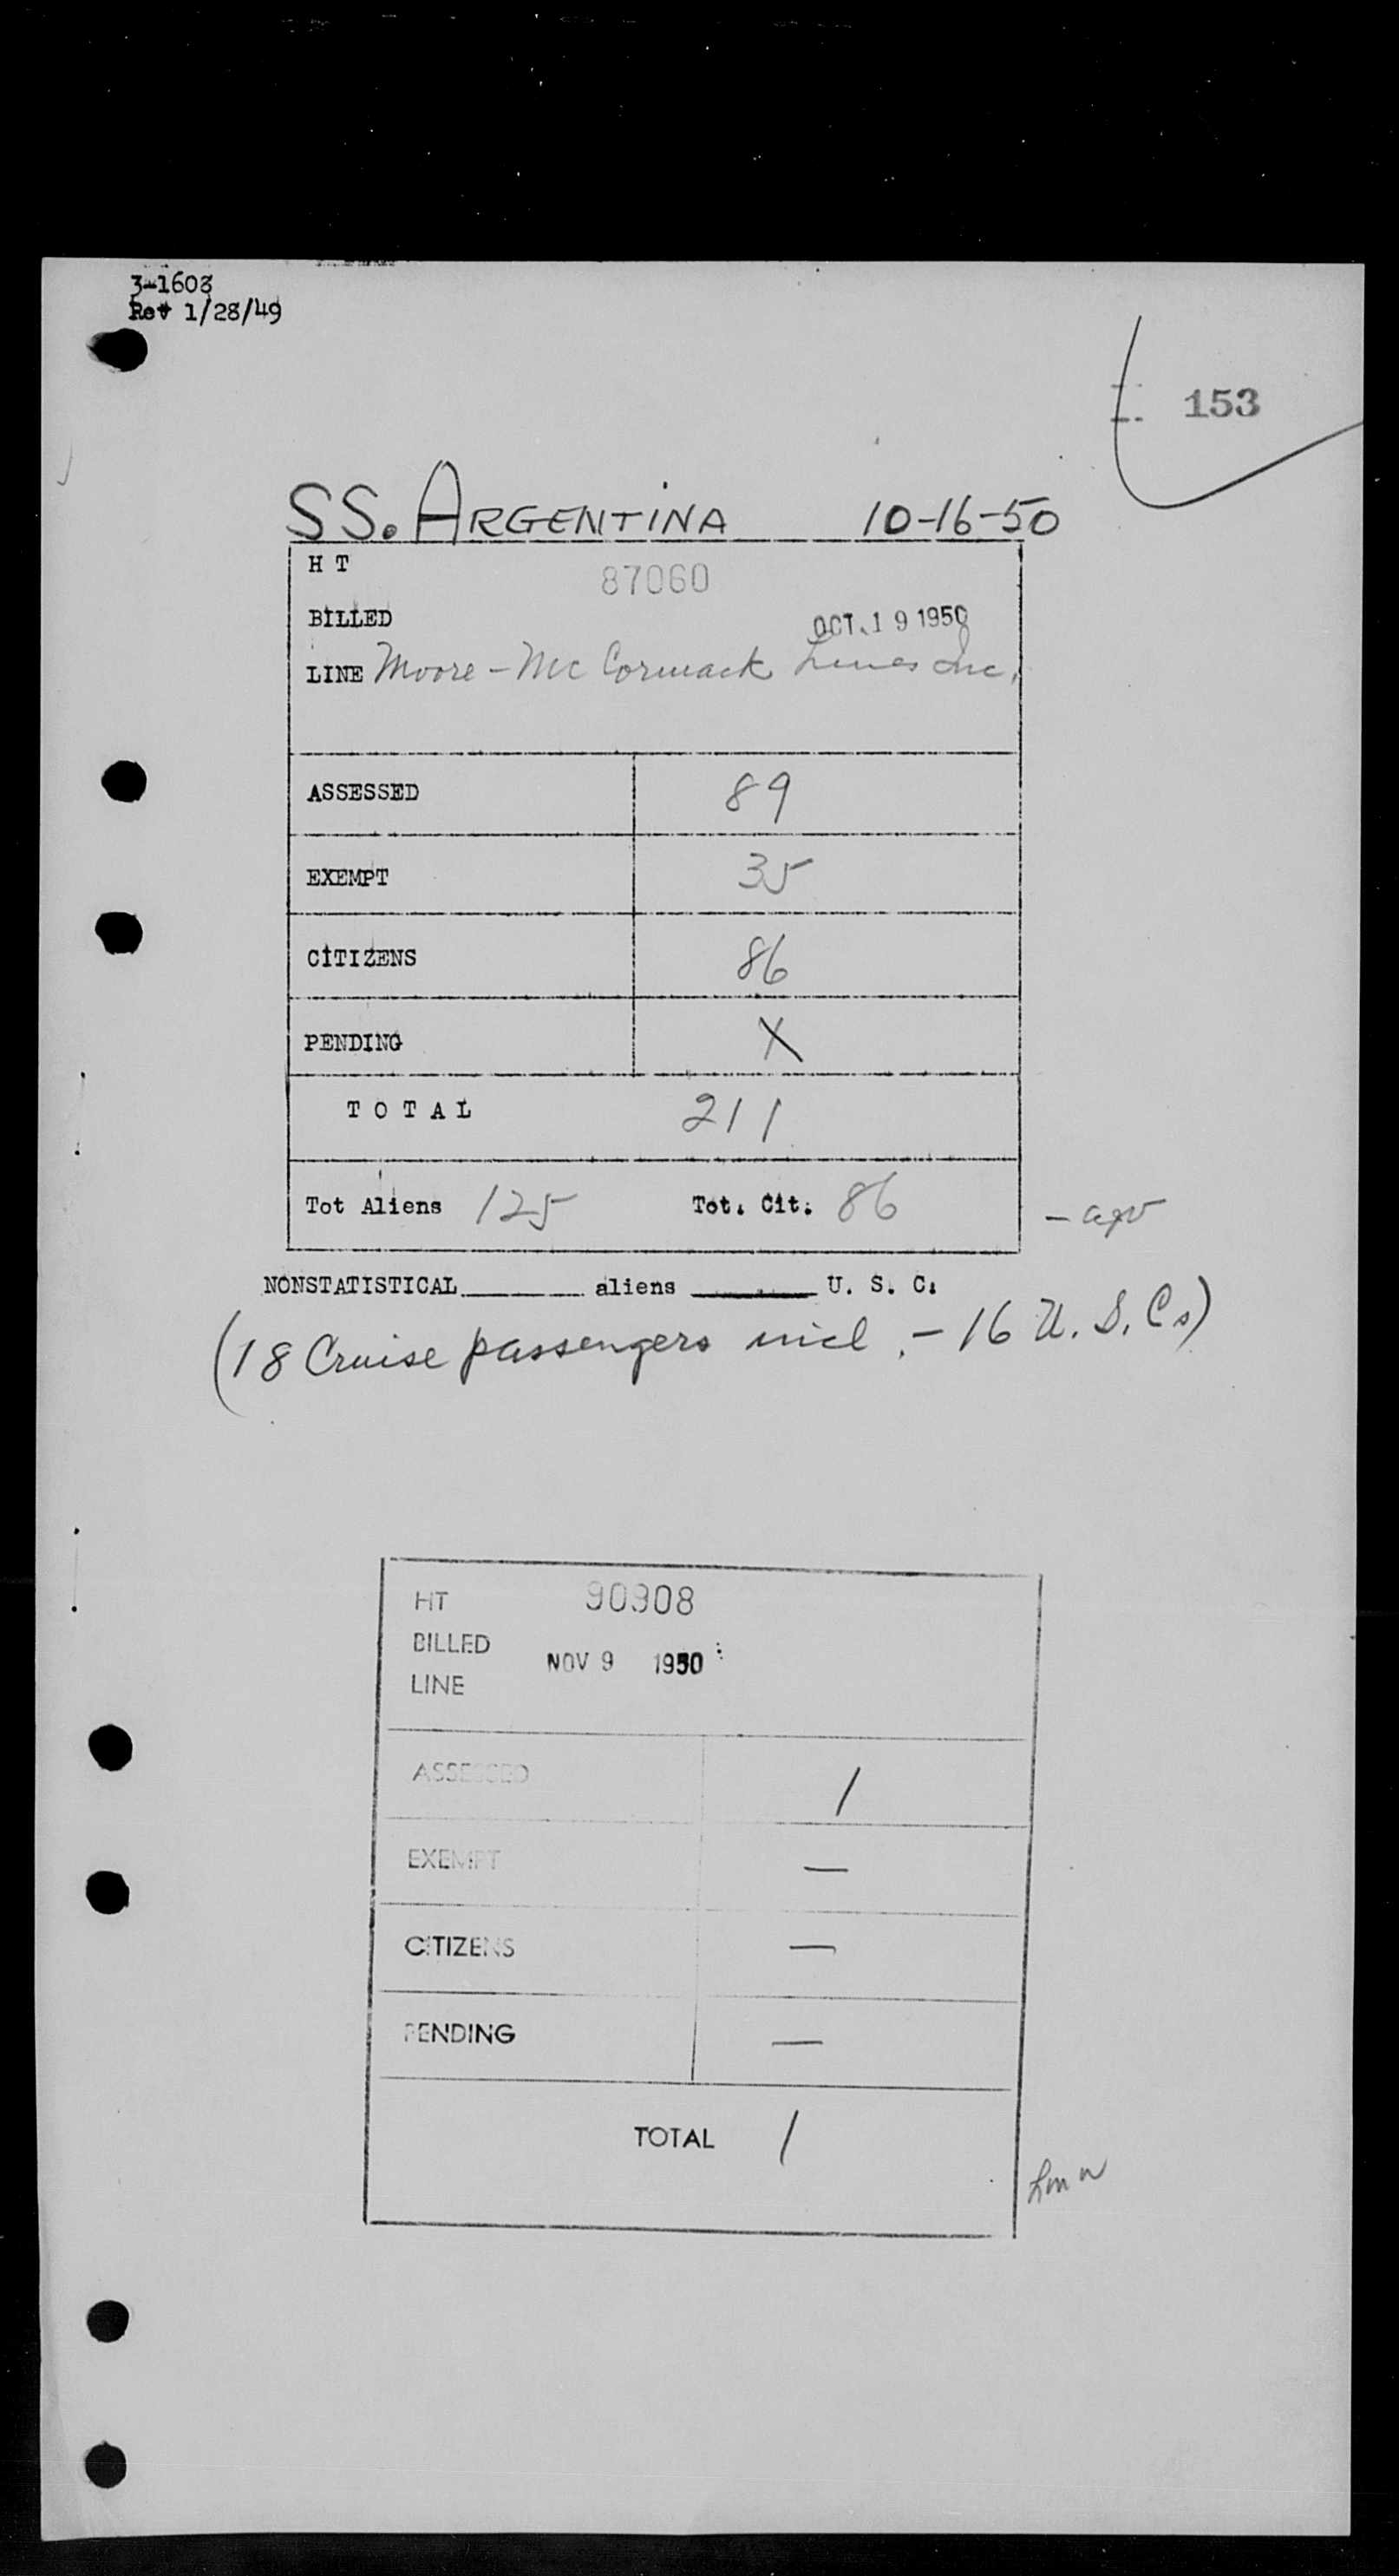 3-1603
Rev 1/28/49
153
SS. ARGENTINA 10-16-50
H T 87060
BILLED OCT. 19 1950
LINE Moore-McCormack Lines Inc.
ASSESSED 89
EXEMPT 35
CITIZENS 86
PENDING X
TOTAL 211
Tot Aliens 125 Tot. Cit. 86
NONSTATISTICAL aliens U. S. C.
(18 Cruise passengers incl. - 16 U.S.Cs)
HT 90308
BILLED NOV 9 1950
LINE
ASSESSED 1
EXEMPT —
CITIZENS —
PENDING —
TOTAL 1